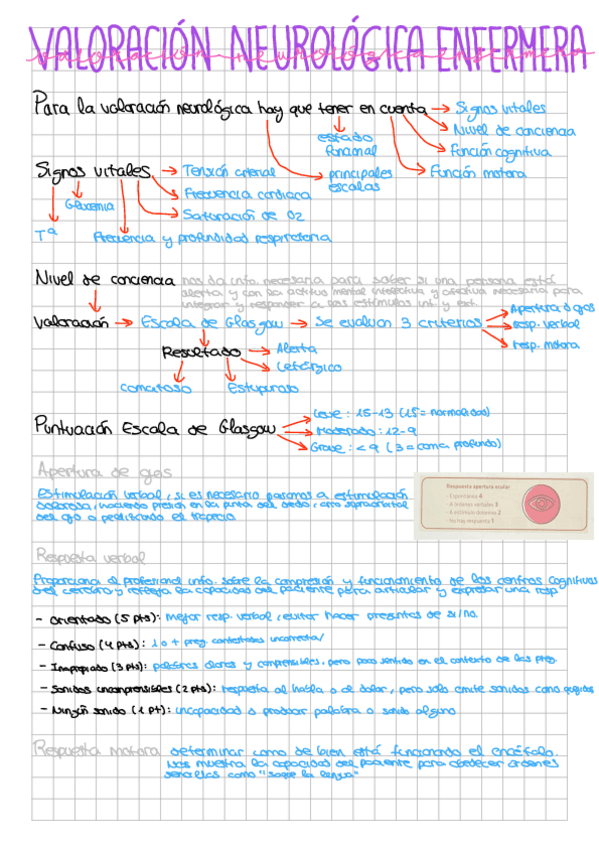 VALORACIÓN NEUROLÓGICA ENFERMERA
valoración neurológica enfermera
Para la valoración neurológica hay que tener en cuenta → Signos vitales
Nivel de conciencia
estado funcional
Función cognitiva
principales escalas
Función motora
Signos vitales → Tensión arterial
Frecuencia cardiaca
Glucemia
Saturación de O2
Tª
Frecuencia y profundidad respiratoria
Nivel de conciencia nos da info. necesaria para saber si una persona está
alerta y con la actitud mental intelectiva y afectiva necesaria para
integrar y responder a los estímulos int. y ext.
Apertura ojos
Valoración → Escala de Glasgow → Se evaluan 3 criterios
resp. verbal
resp. motora
Resultado → Alerta
Letárgico
Comatoso
Estuporoso
Leve: 15-13 (15= normalidad)
Puntuación Escala de Glasgow
Moderado: 12-9
Grave: <9 (3= coma profundo)
Apertura de ojos
Estimulación verbal, si es necesario pasamos a estimulación
dolorosa, haciendo presión en la punta del dedo, arco supraorbital
del ojo o pellizcando el trapecio
Respuesta apertura ocular
- Espontánea 4
- A órdenes verbales 3
- A estímulo doloroso 2
- No hay respuesta 1
Respuesta verbal
Proporciona al profesional info. sobre la compresión y funcionamiento de los centros cognitivos
del cerebro y refleja la capacidad del paciente para articular y expresar una resp
- Orientado (5 pts): mejor resp. verbal, evitar hacer preguntas de si/no.
- Confuso (4 pts): 1 o + preg. contestadas incorrecta/
- Inapropiado (3 pts): palabras claras y comprensibles, pero poco sentido en el contexto de las preg.
- Sonidos incomprensibles (2 pts): respuesta al habla o al dolor, pero solo emite sonidos como quejidos
- Ningún sonido (1 pt): incapacidad a producir palabra o sonido alguno
Respuesta Motora determinar como de bien está funcionando el encéfalo.
Nos muestra la capacidad del paciente para obedecer ordenes
sencillas como "saque la lengua"